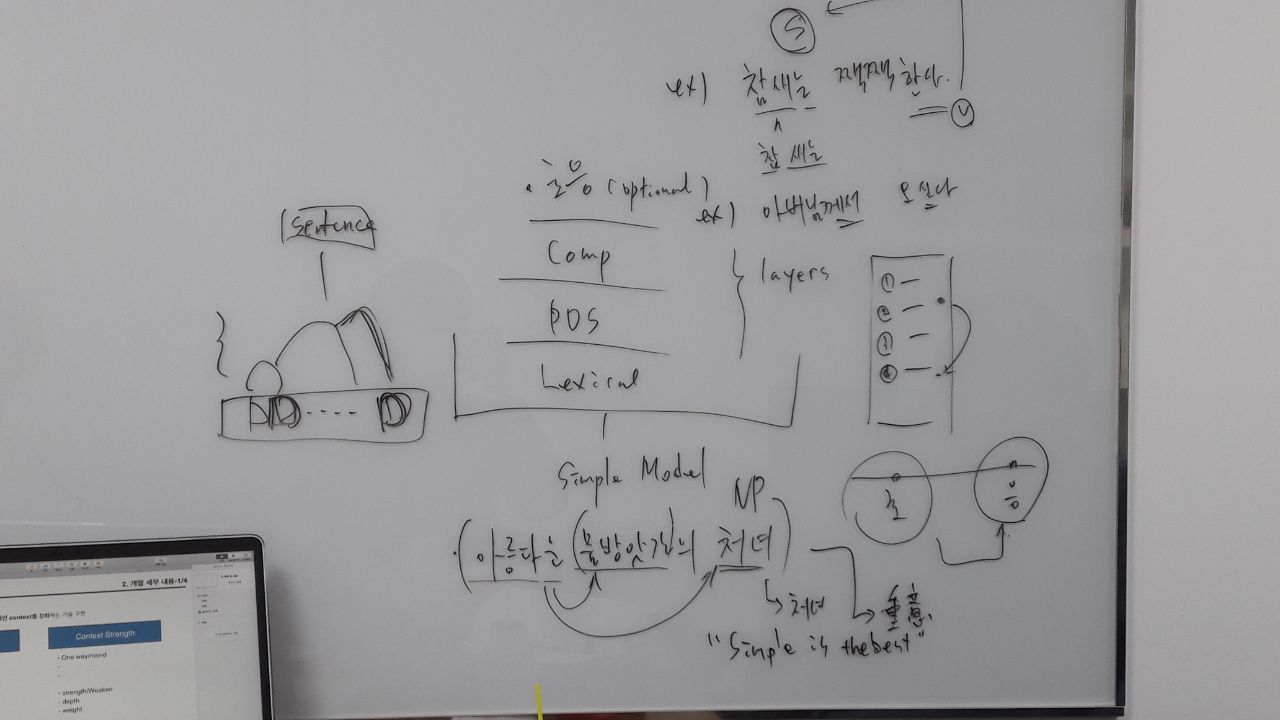 S
ex) 참새는 짹짹한다.
V
참 새는
· 호응 (optional)
ex) 아버님께서 오신다
Sentence
Comp
layers
POS
Lexical
① —
② —
③ —
④ —
D D ---- D
Simple Model
NP
호
응
·(아름다운 (물방앗간)의 처녀)
처녀
重意
"Simple is the best"
2. 개발 세부 내용-1/4
context를 강화하는 기술 구현
Context Strength
• One way/round
• strength/Weaken
- depth
- weight